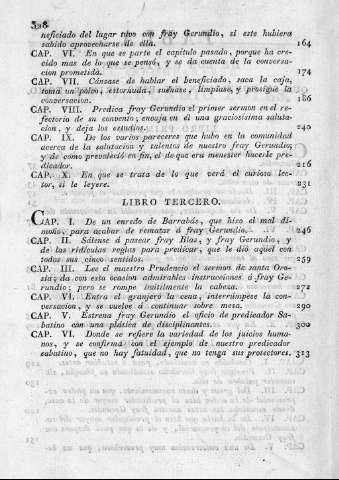 328
neficiado del lugar tuvo con fray Gerundio, si este hubiera
sabido aprovecharse de ella. 164
CAP. VI. En que se parte el capítulo pasado, porque ha cre-
cido mas de lo que se pensó, y se da cuenta de la conversa-
cion prometida. 174
CAP. VII. Cánsase de hablar el beneficiado, saca la caja,
toma un polvo, estornuda, suénase, límpiase, y prosigue la
conversacion. 186
CAP. VIII. Predica fray Gerundio el primer sermon en el re-
fectorio de su convento, encaja en él una graciosísima saluta-
cion, y deja los estudios. 240
CAP. IX. De los varios pareceres que hubo en la comunidad
acerca de la salutacion y talentos de nuestro fray Gerundio,
y de como prevaleció en fin, el de que era menester hacerle pre-
dicador. 216
CAP. X. En que se trata de lo que verá el curioso lec-
tor, si le leyere. 231
LIBRO TERCERO.
CAP. I. De un enredo de Barrabás, que hizo el mal di-
moño, para acabar de rematar á fray Gerundio. 246
CAP. II. Sálense á pasear fray Blas, y fray Gerundio, y
de las ridículas reglas para predicar, que le dió aquel con
todos sus cinco sentidos. 259
CAP. III. Lee el maestro Prudencio el sermon de santa Oro-
sia; da con esta ocasion admirables instrucciones á fray Ge-
rundio; pero se rompe inutilmente la cabeza. 272
CAP. VI. Entra el granjero la cena, interrúmpese la con-
versacion, y se vuelve á continuar sobre mesa. 290
CAP. V. Estrena fray Gerundio el oficio de predicador Sa-
batino con una plática de disciplinantes. 300
CAP. VI. Donde se refiere la variedad de los juicios huma-
nos, y se confirma con el ejemplo de nuestro predicador
sabatino, que no hay fatuidad, que no tenga sus protectores. 313